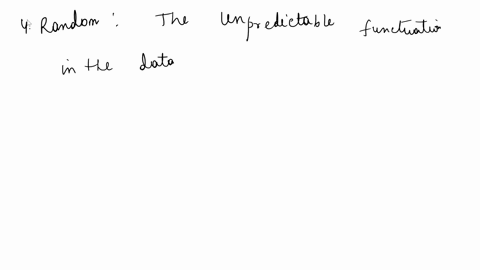 4. Random : The Unpredictable functuatio
in the data